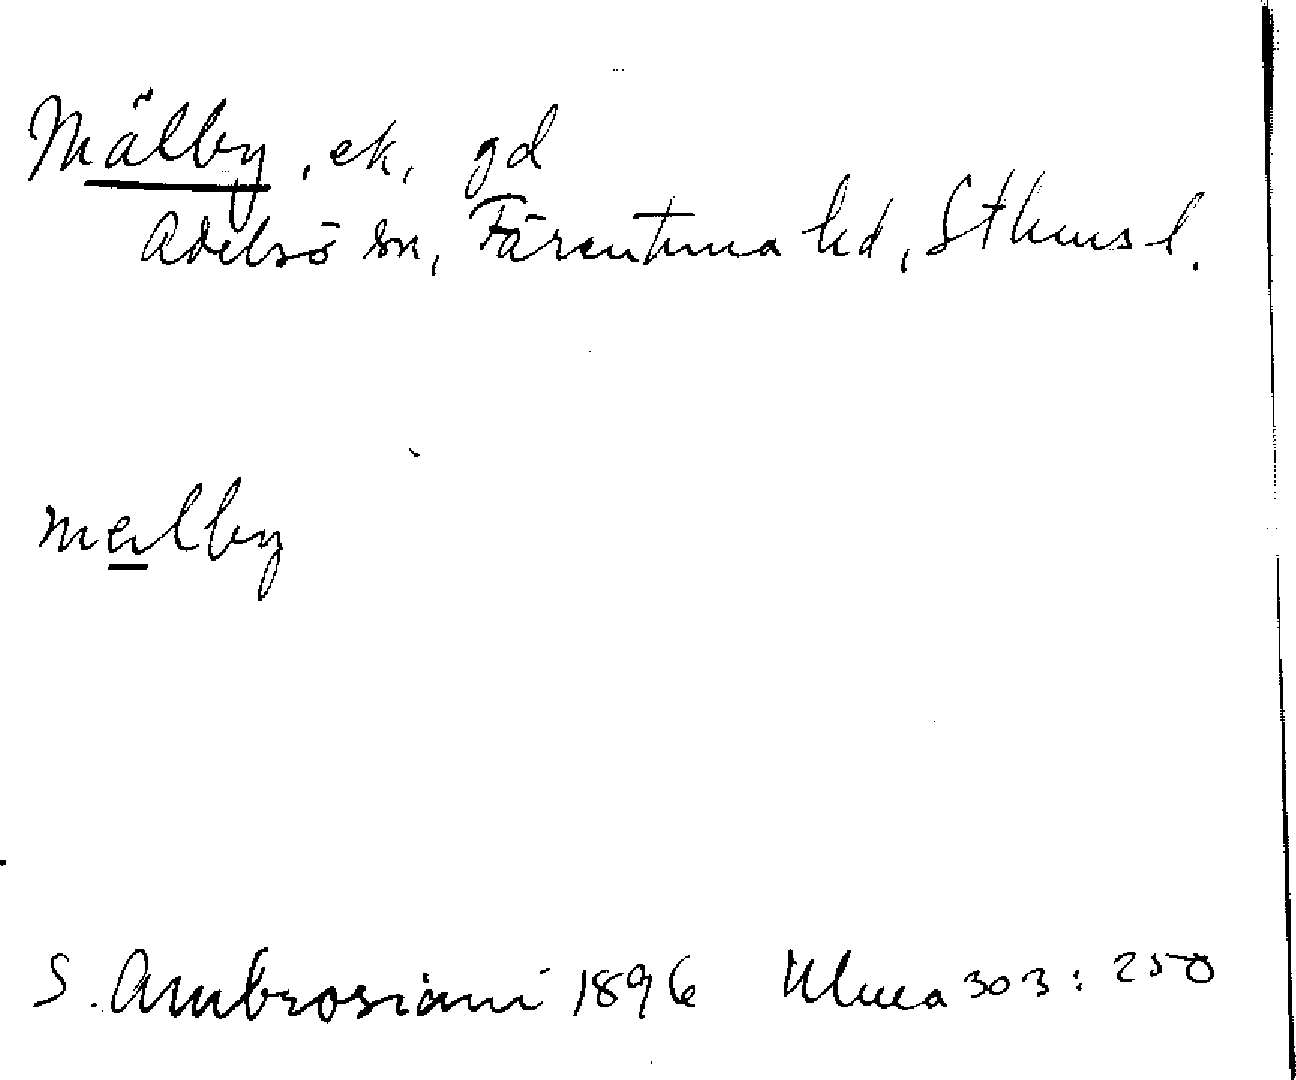 Mälby, ek, gd
Adelsö sn, Färentuna hd, Sthms l.
melby
S. Ambrosiani 1896 Ulma 303:250